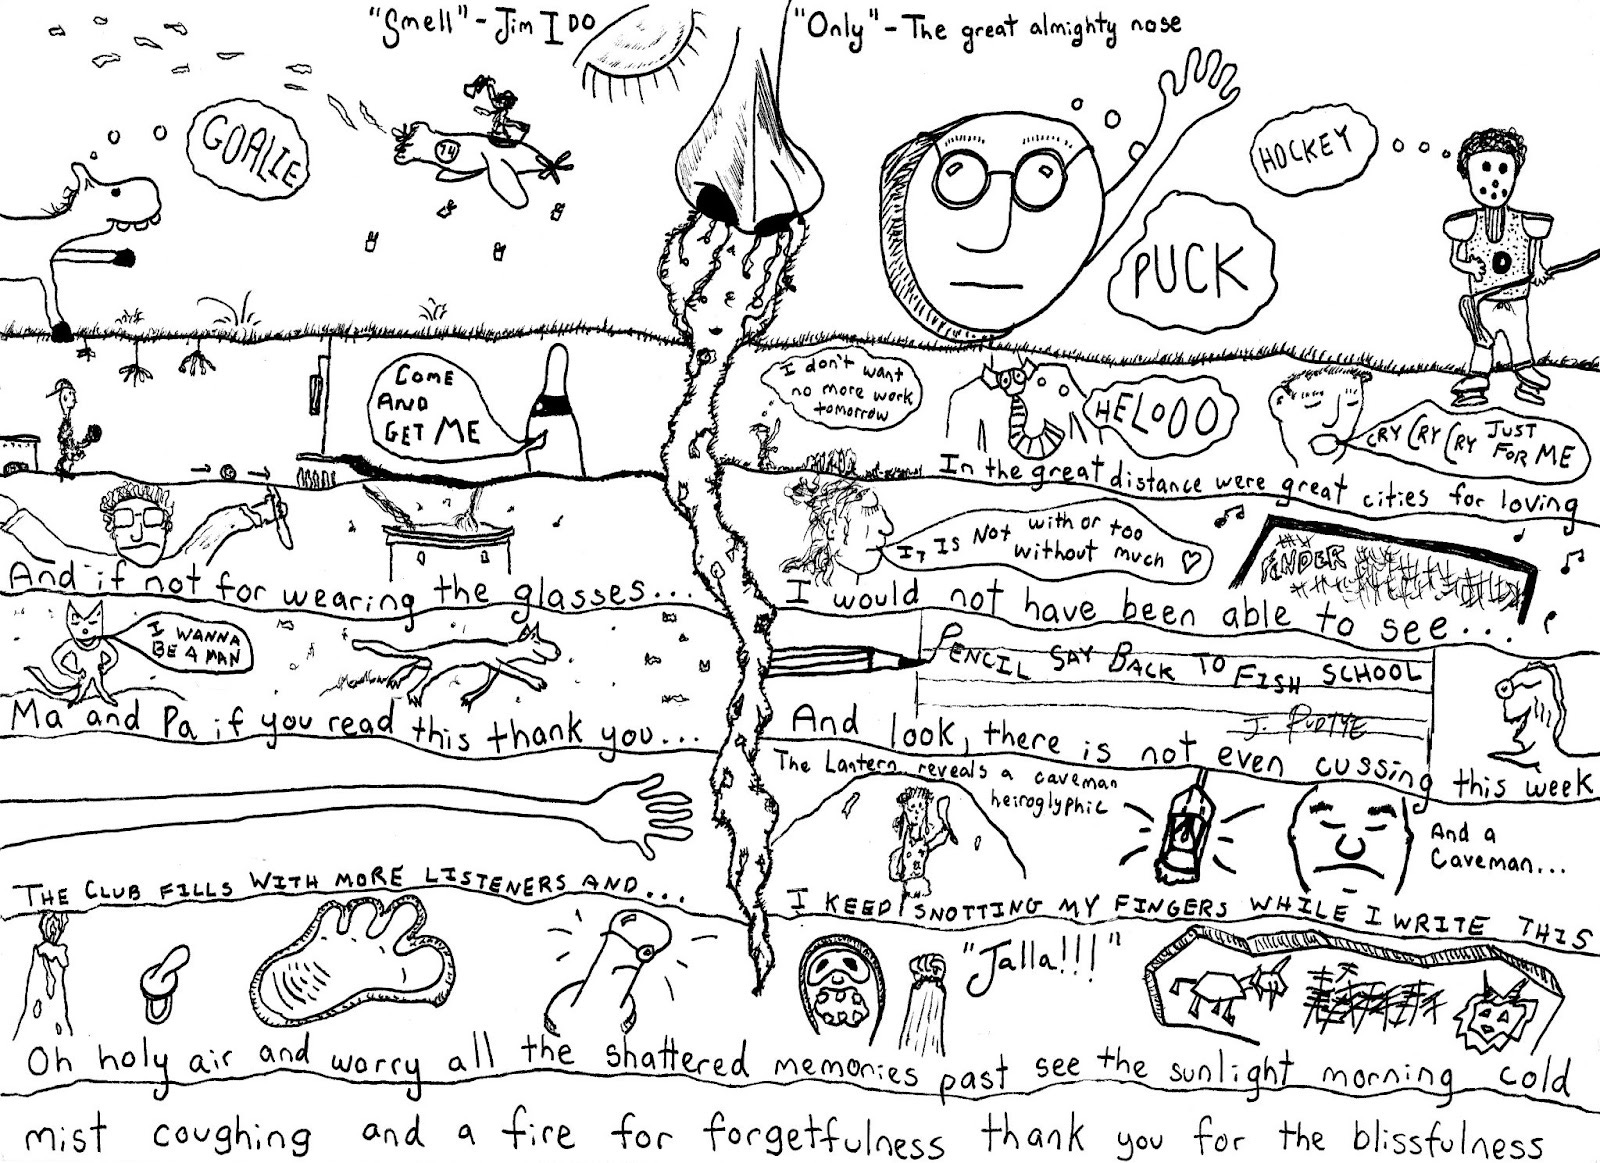 "Smell" - Jim I DO
"Only" - The great almighty nose
GOALIE
74
PUCK
HOCKEY
D
COME
AND
GET ME
I don't want
no more work
tomorrow
HELOOO
CRY CRY CRY JUST
FOR ME
In the great distance were great cities for loving
And if not for wearing the glasses...
I, IS NOT with or too
without much
FENDER
I would not have been able to see...
I WANNA
BE A MAN
Ma and Pa if you read this thank you...
PENCIL SAY BACK TO FISH SCHOOL
And look, there is not even cussing this week
The Lantern reveals a caveman
heiroglyphic
And a
Caveman...
THE CLUB FILLS WITH MORE LISTENERS AND...
I KEEP SNOTTING MY FINGERS WHILE I WRITE THIS
"Jalla!!!"
Oh holy air and worry all the shattered memories past see the sunlight morning cold
mist coughing and a fire for forgetfulness thank you for the blissfulness